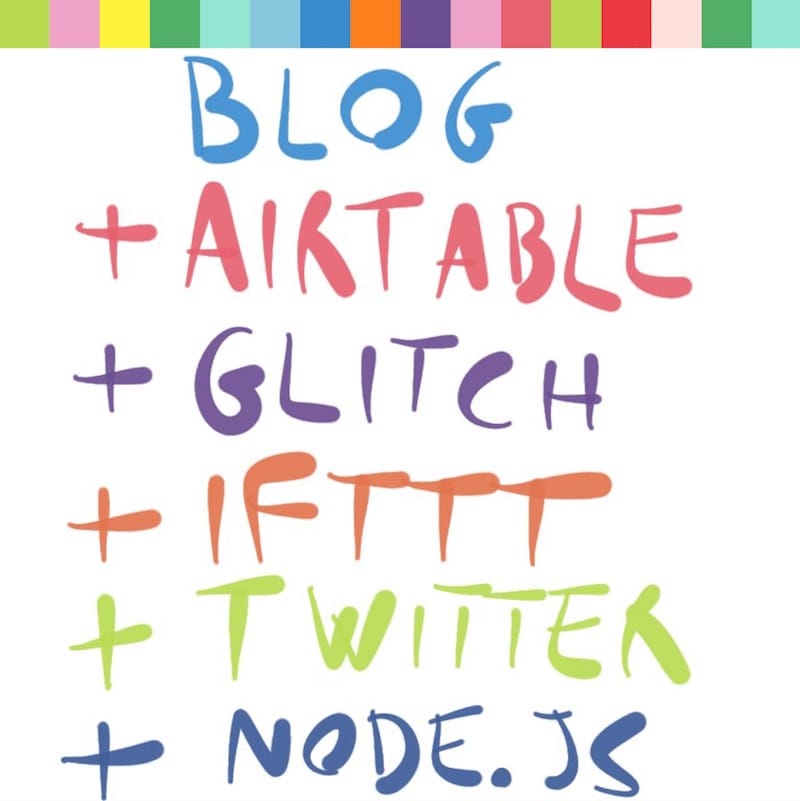 BLOG
+ AIRTABLE
+ GLITCH
+ IFTTT
+ TWITTER
+ NODE.JS